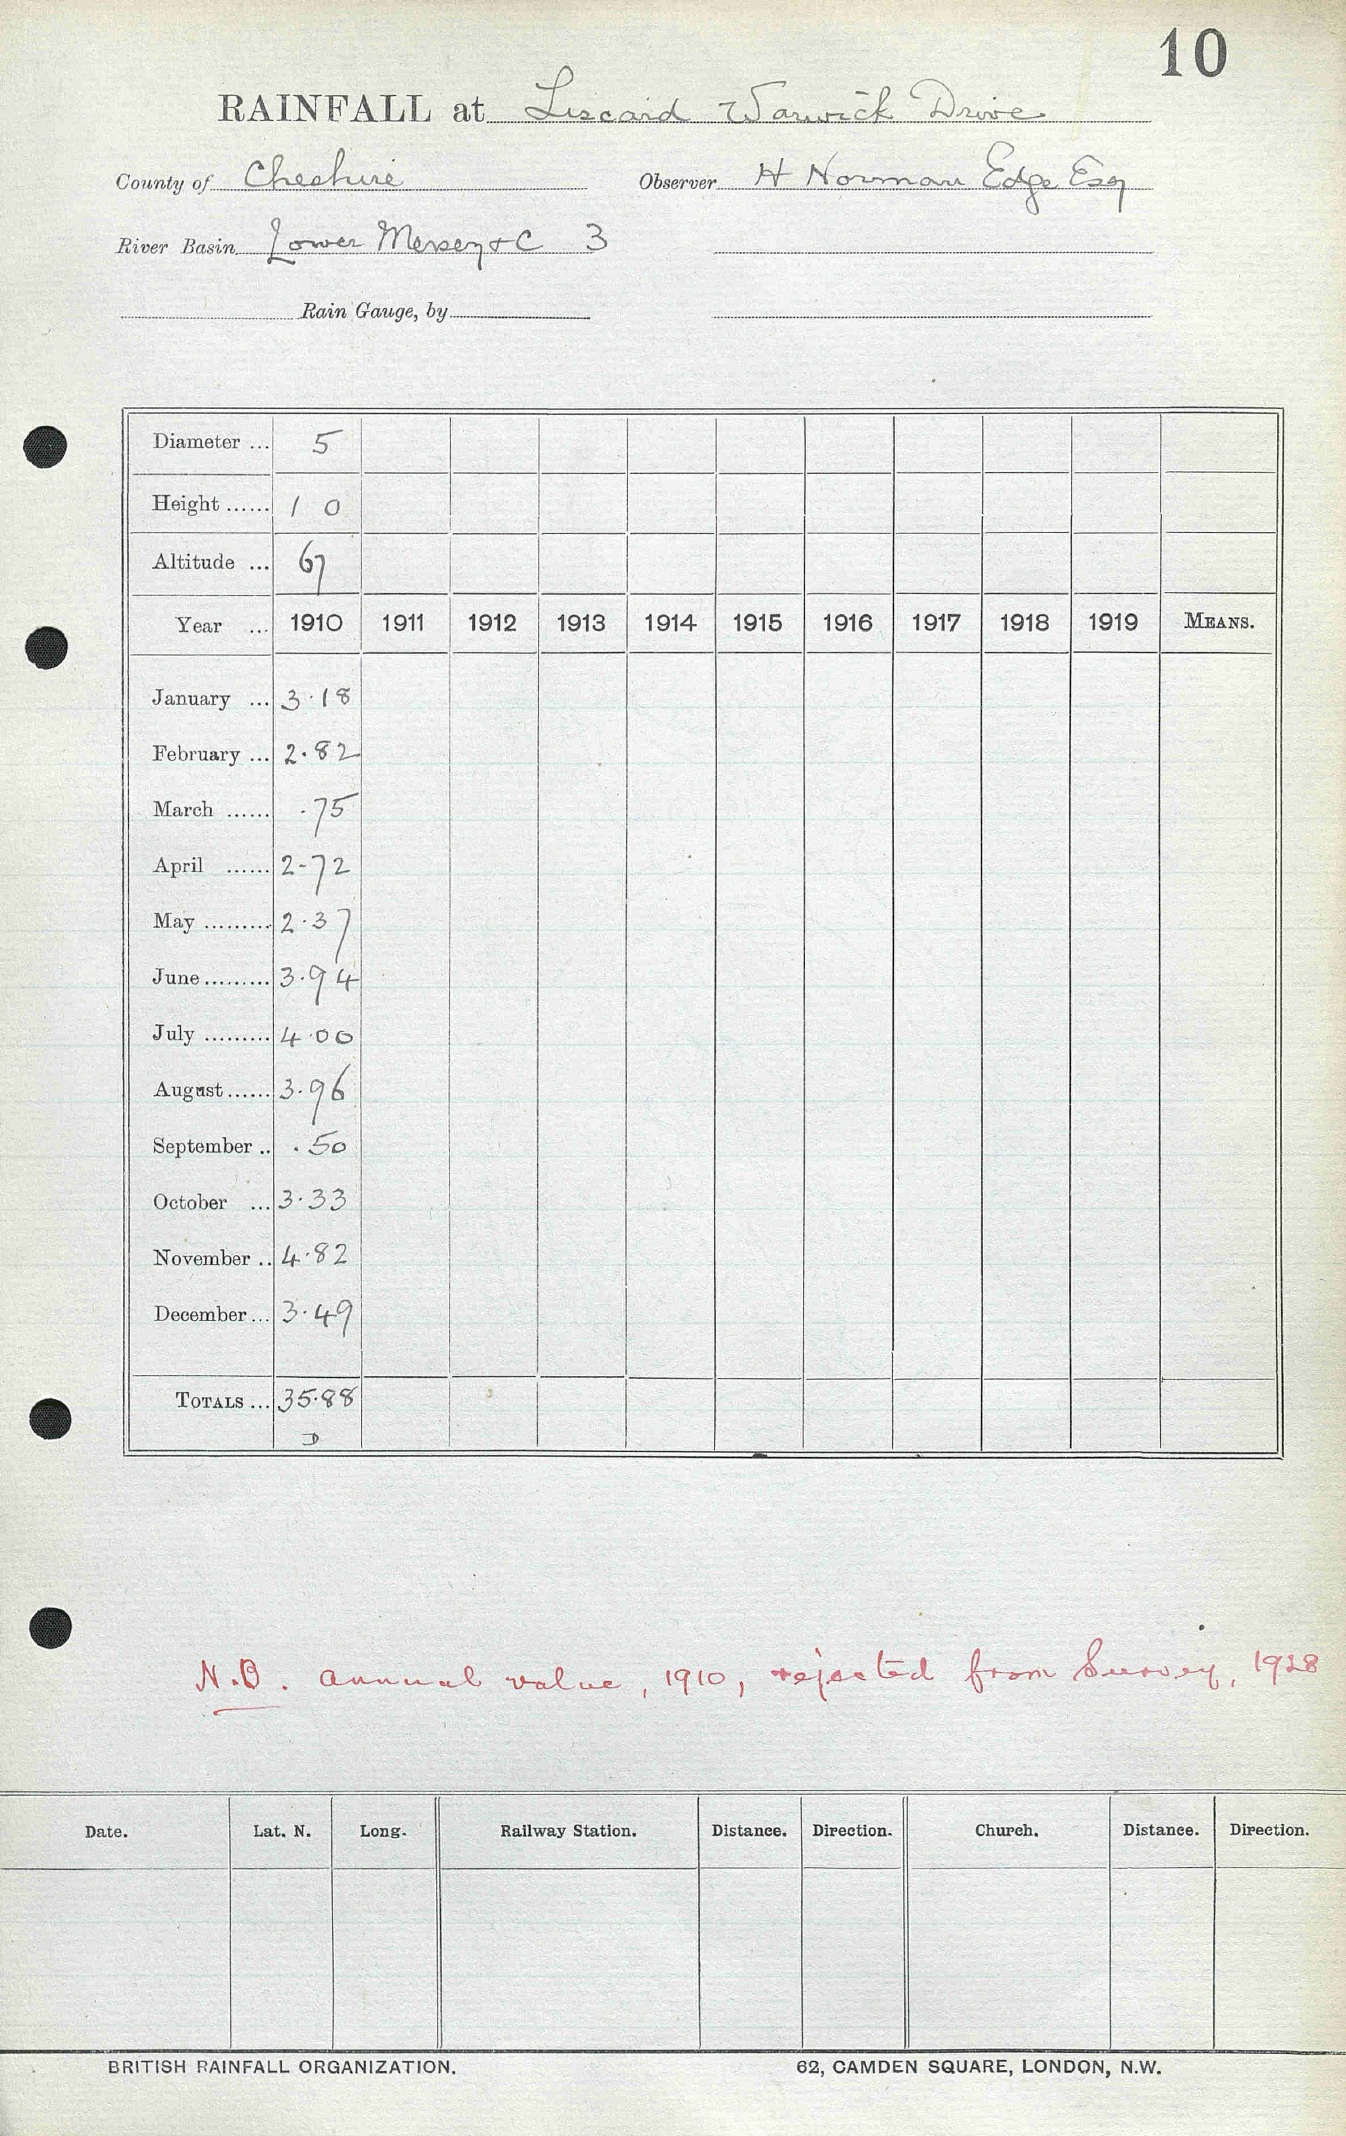 10
RAINFALL at Liscard Warwick Drive
County of Cheshire Observer H Norman Edge Esq
River Basin Lower Mersey &c 3
Rain Gauge, by
Diameter ... 5
Height ...... 1 0
Altitude ... 67
Year ... 1910 1911 1912 1913 1914 1915 1916 1917 1918 1919 MEANS.
January ... 3.18
February ... 2.82
March ...... .75
April ...... 2.72
May ......... 2.37
June ......... 3.94
July ......... 4.00
August ...... 3.96
September .. .50
October ... 3.33
November .. 4.82
December ... 3.49
TOTALS ... 35.88
D
N.B. annual value, 1910, rejected from Survey, 1928
Date. Lat. N. Long. Railway Station. Distance. Direction. Church. Distance. Direction.
BRITISH RAINFALL ORGANIZATION. 62, CAMDEN SQUARE, LONDON, N.W.